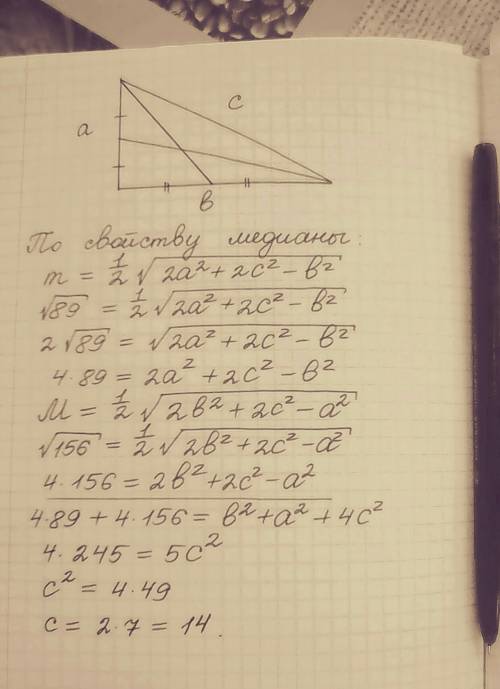 c
a
в
По свойству медианы:
m = 1/2 √(2a² + 2c² − в²)
√89 = 1/2 √(2a² + 2c² − в²)
2√89 = √(2a² + 2c² − в²)
4·89 = 2a² + 2c² − в²
M = 1/2 √(2в² + 2c² − a²)
√156 = 1/2 √(2в² + 2c² − a²)
4·156 = 2в² + 2c² − a²
4·89 + 4·156 = в² + a² + 4c²
4·245 = 5c²
c² = 4·49
c = 2·7 = 14.